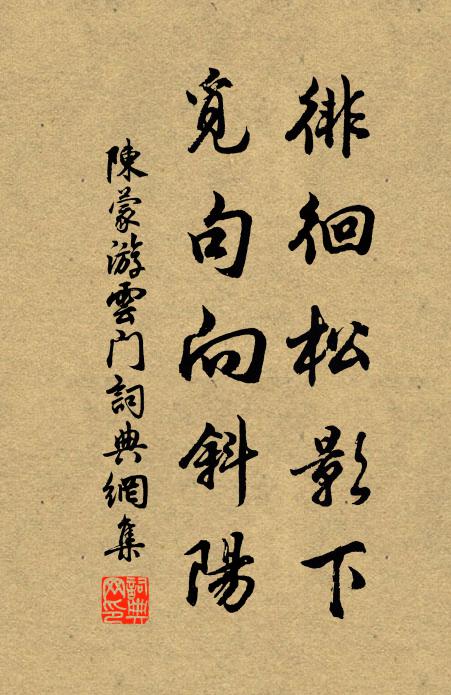 徘徊松影下
覓句向斜陽
陳蒙游雲門詞典網集
詞典網印